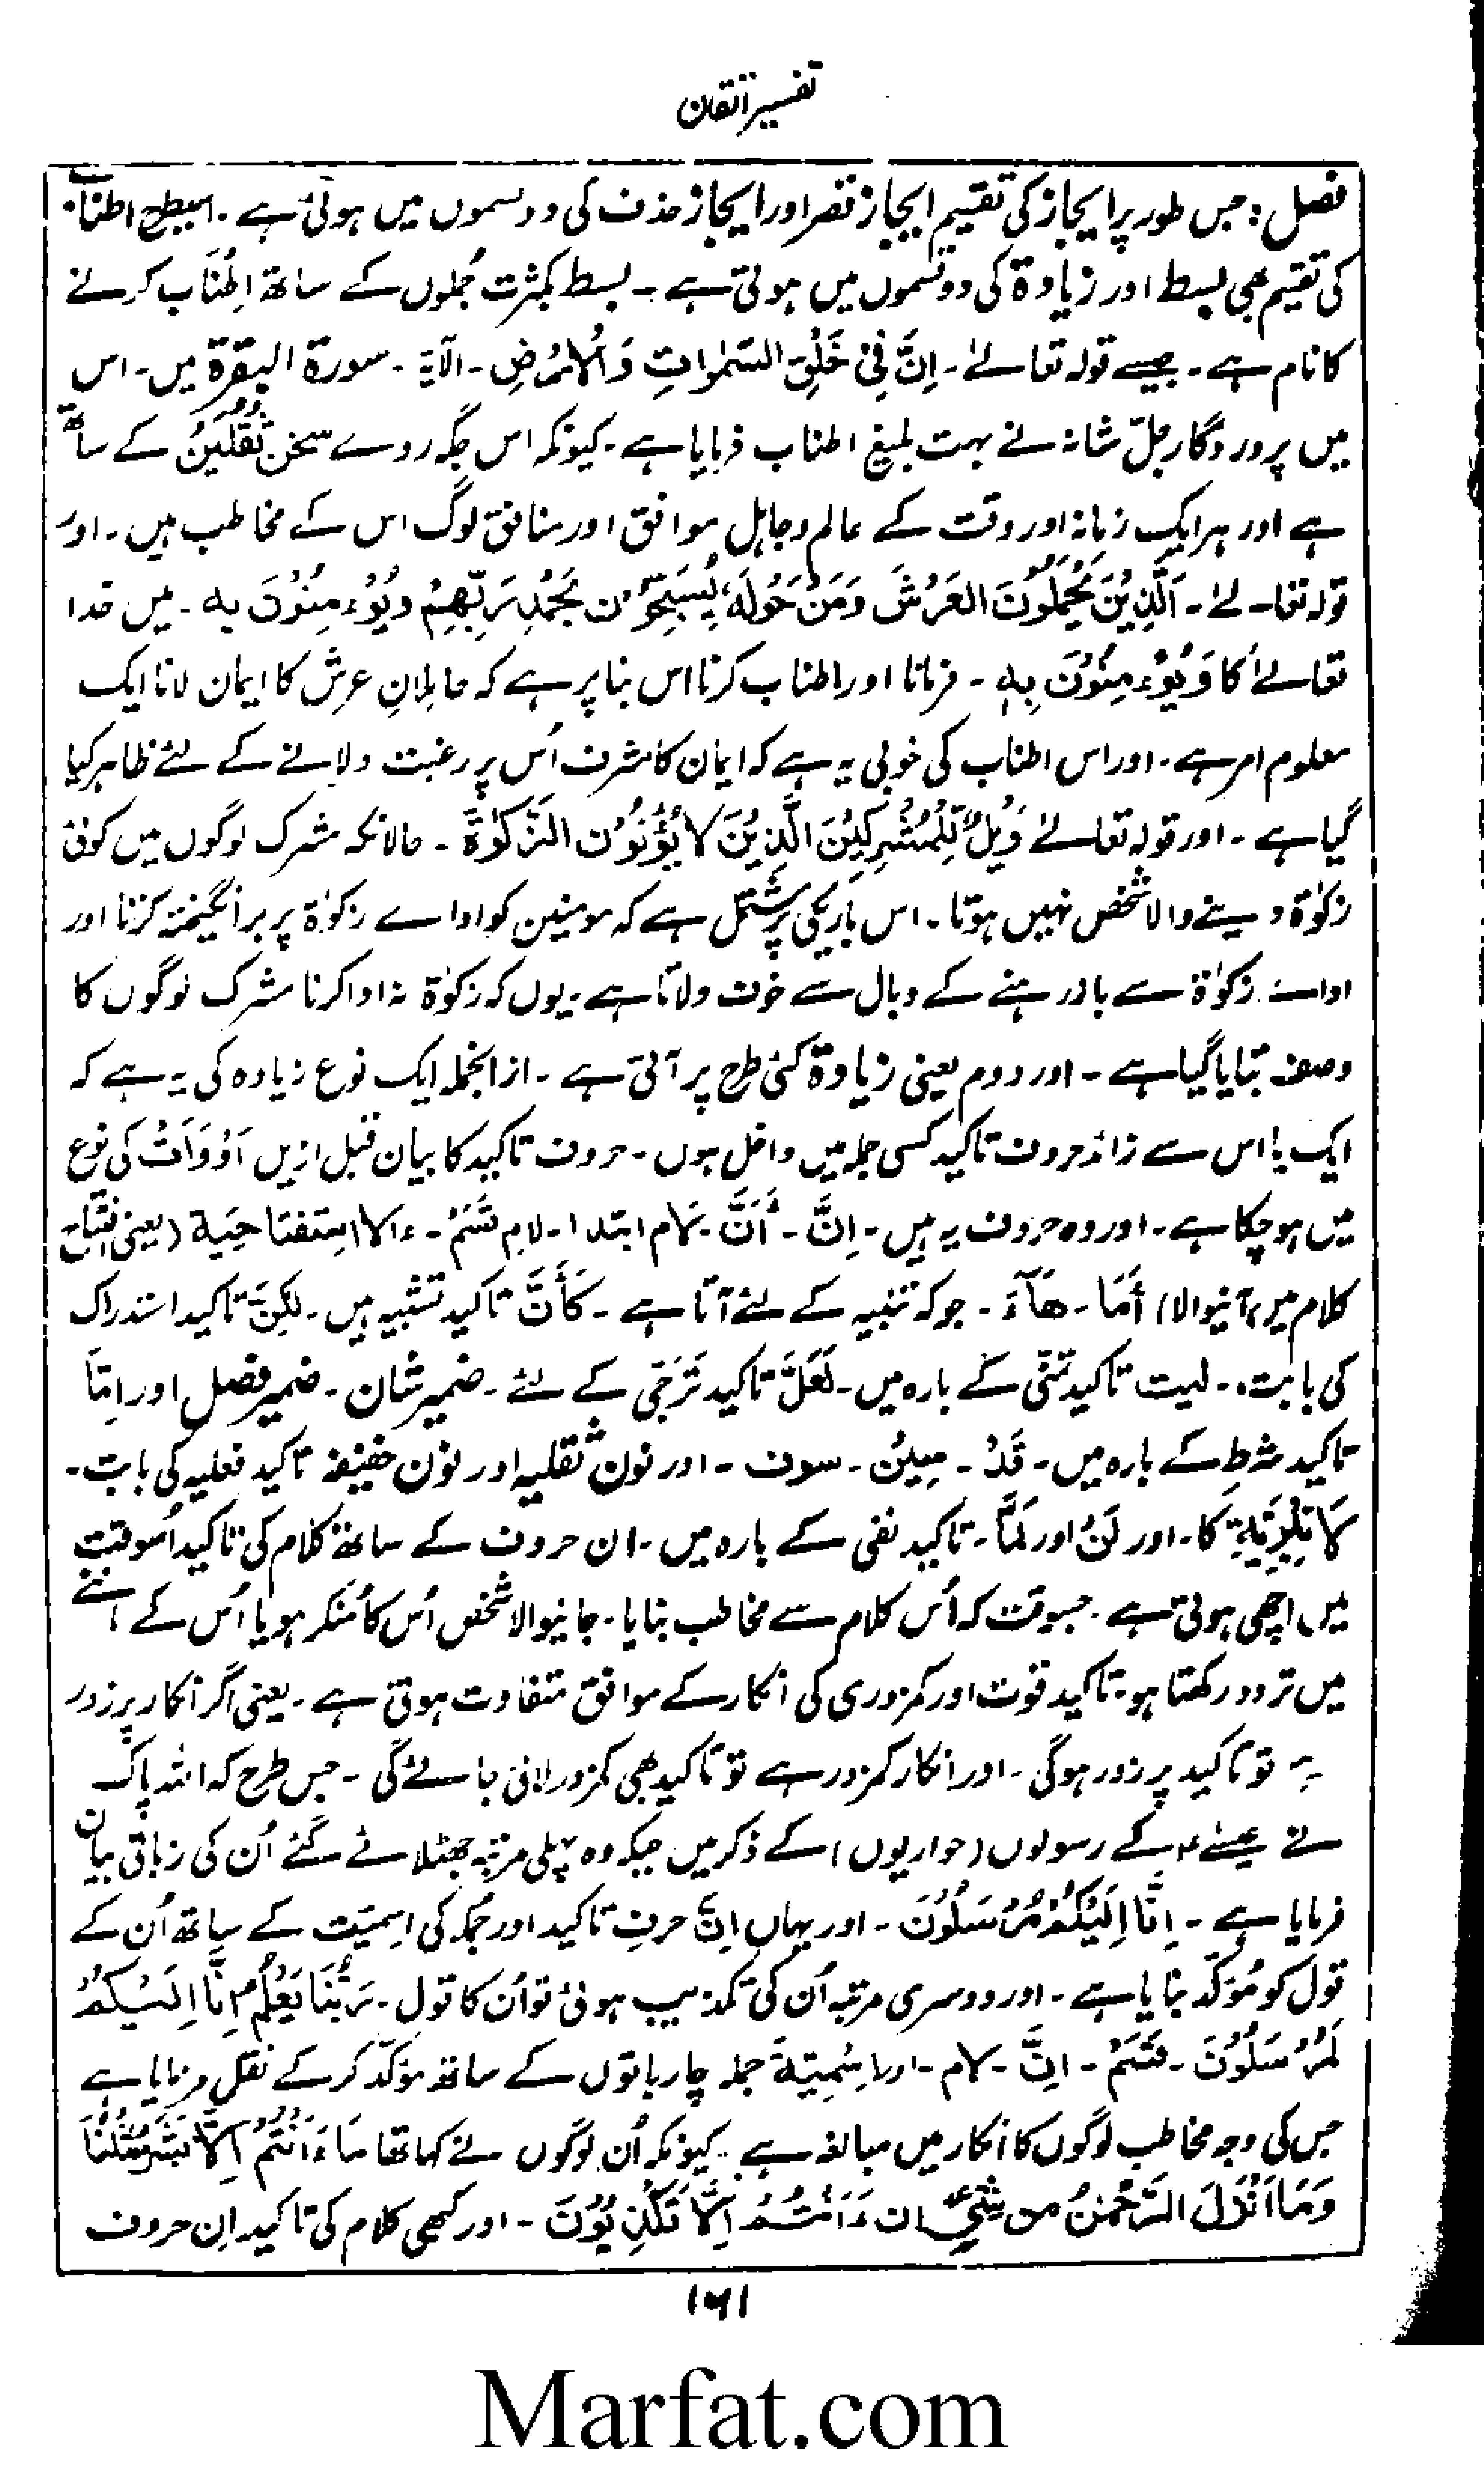 تفسیر اتقان
فصل: جس طور پر ایجاز کی تقسیم ایجاز قصر اور ایجاز حذف کی دو قسموں میں ہوئی ہے۔ اسیطح اطناب
کی تقیم بھی بسط اور زیادۃ کی دو قسموں میں ہوتی ہے۔ بسط بکثرت جُملوں کے ساتھ اِطْنَاب کرنے
کا نام ہے۔ جیسے قولہ تعالےٰ۔ اِنَّ فِیْ خَلْقِ السَّمٰوَاتِ وَالْاَرْضِ۔ الآیۃ۔ سورۃ البقرۃ میں۔ اس
میں پروردگار جلّ شانہ نے بہت بلیغ اطناب فرمایا ہے۔ کیونکہ اس جگہ روے سخن ثَقَلَیْنُ کے ساتھ
ہے اور ہر ایک زمانہ اور وقت کے عالم و جاہل موافق اور منافق لوگ اس کے مخاطب ہیں۔ اور
قولہ تعالےٰ۔ اَلَّذِیْنَ یَحْمِلُوْنَ الْعَرْشَ وَمَنْ حَوْلَهٗ یُسَبِّحُوْنَ بِحَمْدِ رَبِّهِمْ وَیُوْءمِنُوْنَ بِه۔ میں خدا
تعالےٰ کا وَیُوْءمِنُوْنَ بِهٖ۔ فرمانا اور اطناب کرنا اس بنا پر ہے کہ حاملانِ عرش کا ایمان لانا ایک
معلوم امر ہے۔ اور اس اطناب کی خوبی یہ ہے کہ ایمان کا شرف اُس پر رغبت دلانے کے لئے ظاہر کیا
گیا ہے۔ اور قولہ تعالےٰ وَیْلٌ لِّلْمُشْرِکِیْنَ الَّذِیْنَ لَا یُؤْتُوْنَ الزَّکٰوۃَ۔ حالانکہ مشرک لوگوں میں کوئی
زکوٰۃ دینے والا شخص نہیں ہوتا۔ اس باریکی پر مشتمل ہے کہ مومنین کو اداے زکوٰۃ پر برانگیختہ کرنا اور
اداے زکوٰۃ سے باز رہنے کے وبال سے خوف دلاتا ہے۔ یوں کہ زکوٰۃ نہ ادا کرنا مشرک لوگوں کا
وصف بتایا گیا ہے۔ اور دوم یعنی زیادۃ کئی طرح پر آتی ہے۔ ازانجملہ ایک نوع زیادہ کی یہ ہے کہ
ایک یا اس سے زائد حروف تاکید کسی جملہ میں داخل ہوں۔ حروف تاکید کا بیان قبل ازیں اَدَوَاتْ کی نوع
میں ہو چکا ہے۔ اور وہ حروف یہ ہیں۔ اِنَّ۔ أَنَّ۔ لام ابتدا۔ لامِ قَسَمْ۔ ءالا اسْتفتاحِیَة (یعنی افتتاح
کلام میں آنیوالا) أَمَا۔ هَآءَ۔ جو کہ تنبیہ کے لئے آتا ہے۔ کَأَنَّ تاکید تشبیہ میں۔ لٰکِنَّ تاکید استدراک
کی بابت۔ لیت تاکید تَمَنّی کے بارہ میں۔ لَعَلَّ تاکید تَرَجّی کے لئے۔ ضمیر شان۔ ضمیر فصل اور اِمَّا
تاکید شرط کے بارہ میں۔ قَدْ۔ سِیْنْ۔ سوف۔ اور نون ثقلیہ اور نون خفیفہ تاکید فعلیہ کی بابت۔
لَا تَبْرِیَةِ کا۔ اور لَنْ اور لَمَّا۔ تاکید نفی کے بارہ میں۔ ان حروف کے ساتھ کلام کی تاکید اُسوقت
میں اچھی ہوتی ہے۔ جسوقت کہ اُس کلام سے مخاطب بنایا۔ جانیوالا شخص اُس کا مُنکر ہو یا اُس کے ماننے
میں تردد رکھتا ہو۔ تاکید قوت اور کمزوری کی انکار کے موافق متفاوت ہوتی ہے۔ یعنی اگر انکار پرزور
ہے تو تاکید پرزور ہوگی۔ اور انکار کمزور ہے تو تاکید بھی کمزور لائی جائے گی۔ جس طرح کہ اللہ پاک
نے عیسےٰ ؑ کے رسولوں (حواریوں) کے ذکر میں جبکہ وہ پہلی مرتبہ جھٹلائے گئے اُن کی زبانی بیان
فرمایا ہے۔ اِنَّا اِلَیْکُمْ مُّرْسَلُوْنَ۔ اور یہاں اِنَّ حرفِ تاکید اور جُملہ کی اِسمِیَّت کے ساتھ اُن کے
قول کو مُؤکّد بنایا ہے۔ اور دوسری مرتبہ اُن کی تکذیب ہوئی تو اُن کا قول۔ رَبُّنَا یَعْلَمُ اِنَّا اِلَیْکُمْ
لَمُرْسَلُوْنَ۔ قَسَمْ۔ اِنَّ۔ لام۔ اور اِسْمِیّةَ جملہ چار باتوں کے ساتھ مؤکّد کرکے نقل فرمایا ہے
جس کی وجہ مخاطب لوگوں کا انکار میں مبالغہ ہے۔ کیونکہ اُن لوگوں نے کہا تھا مَاءَاَنْتُمْ اِلَّا بَشَرٌ مِّثْلُنَا
وَمَا اَنْزَلَ الرَّحْمٰنُ من شَیْءٍ ان ءَاَنْتُمْ اِلَّا تَکْذِبُوْنَ۔ اور کبھی کلام کی تاکید اِن حروف
۱۶۱
Marfat.com